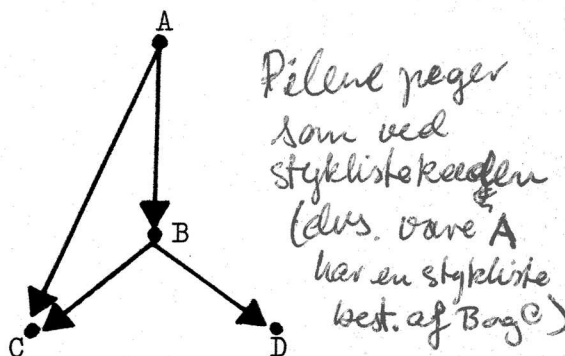 A
B
C
D
Pilene peger
som ved
styklistekæden
(dvs. vare A
har en stykliste
best. af B og C)